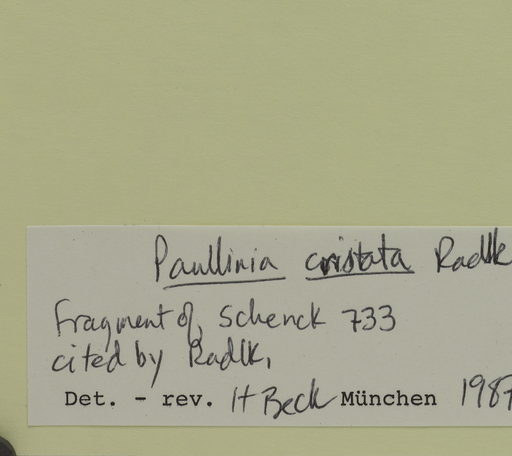 Paullinia cristata Radlk
Fragment of, Schenck 733
cited by Radlk,
Det. - rev. H Beck München 1987